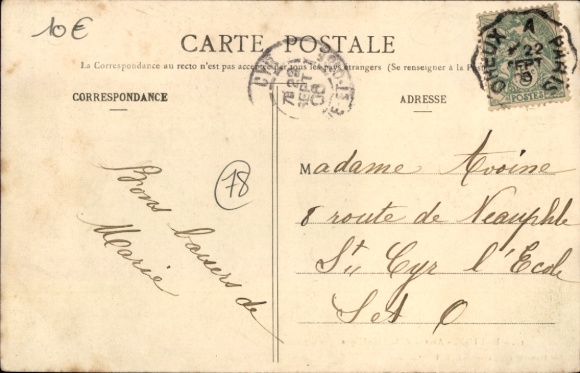 10€
CARTE POSTALE
La Correspondance au recto n'est pas acceptée par tous les pays étrangers (Se renseigner à la P
CORRESPONDANCE
ADRESSE
DREUX A PARIS
22
SEPT
POSTES
22
SEPT
08
78
Bons baisers de
Marie
Madame Avoine
8 route de Neauphle
St Cyr l'Ecole
S et O